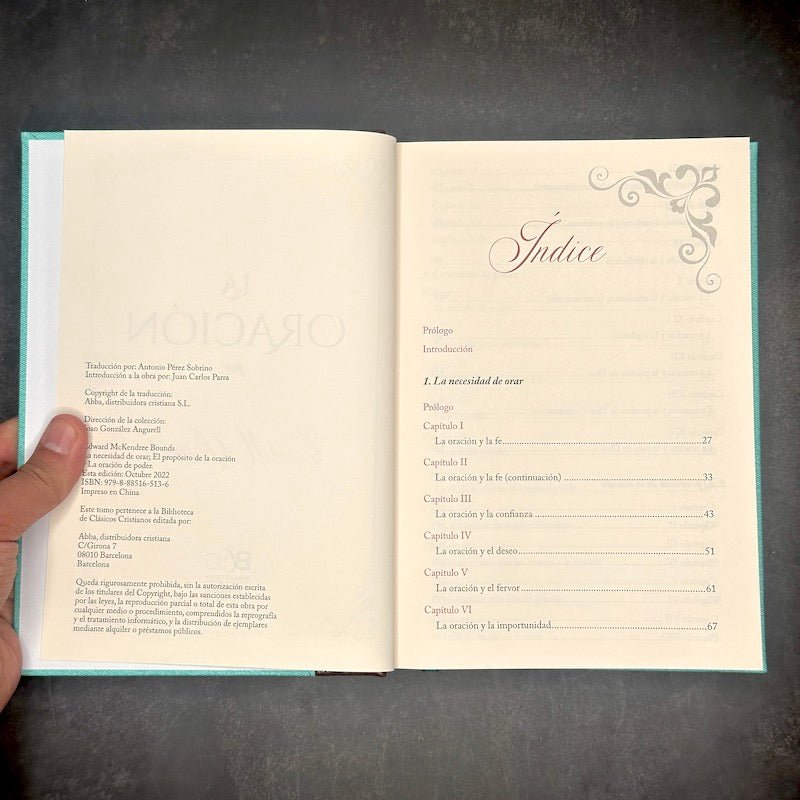 Traducción por: Antonio Pérez Sobrino
Introducción a la obra por: Juan Carlos Parra
Copyright de la traducción:
Abba, distribuidora cristiana S.L.
Dirección de la colección:
Joan González Angurell
Edward McKendree Bounds
La necesidad de orar; El propósito de la oración
y La oración de poder.
Esta edición: Octubre 2022
ISBN: 979-8-88516-513-6
Impreso en China
Este tomo pertenece a la Biblioteca
de Clásicos Cristianos editada por:
Abba, distribuidora cristiana
C/Girona 7
08010 Barcelona
Barcelona
Queda rigurosamente prohibida, sin la autorización escrita
de los titulares del Copyright, bajo las sanciones establecidas
por las leyes, la reproducción parcial o total de esta obra por
cualquier medio o procedimiento, comprendidos la reprografía
y el tratamiento informático, y la distribución de ejemplares
mediante alquiler o préstamos públicos.
Índice
Prólogo
Introducción
1. La necesidad de orar
Prólogo
Capítulo I
La oración y la fe...27
Capítulo II
La oración y la fe (continuación) ...33
Capítulo III
La oración y la confianza ...43
Capítulo IV
La oración y el deseo...51
Capítulo V
La oración y el fervor...61
Capítulo VI
La oración y la importunidad...67